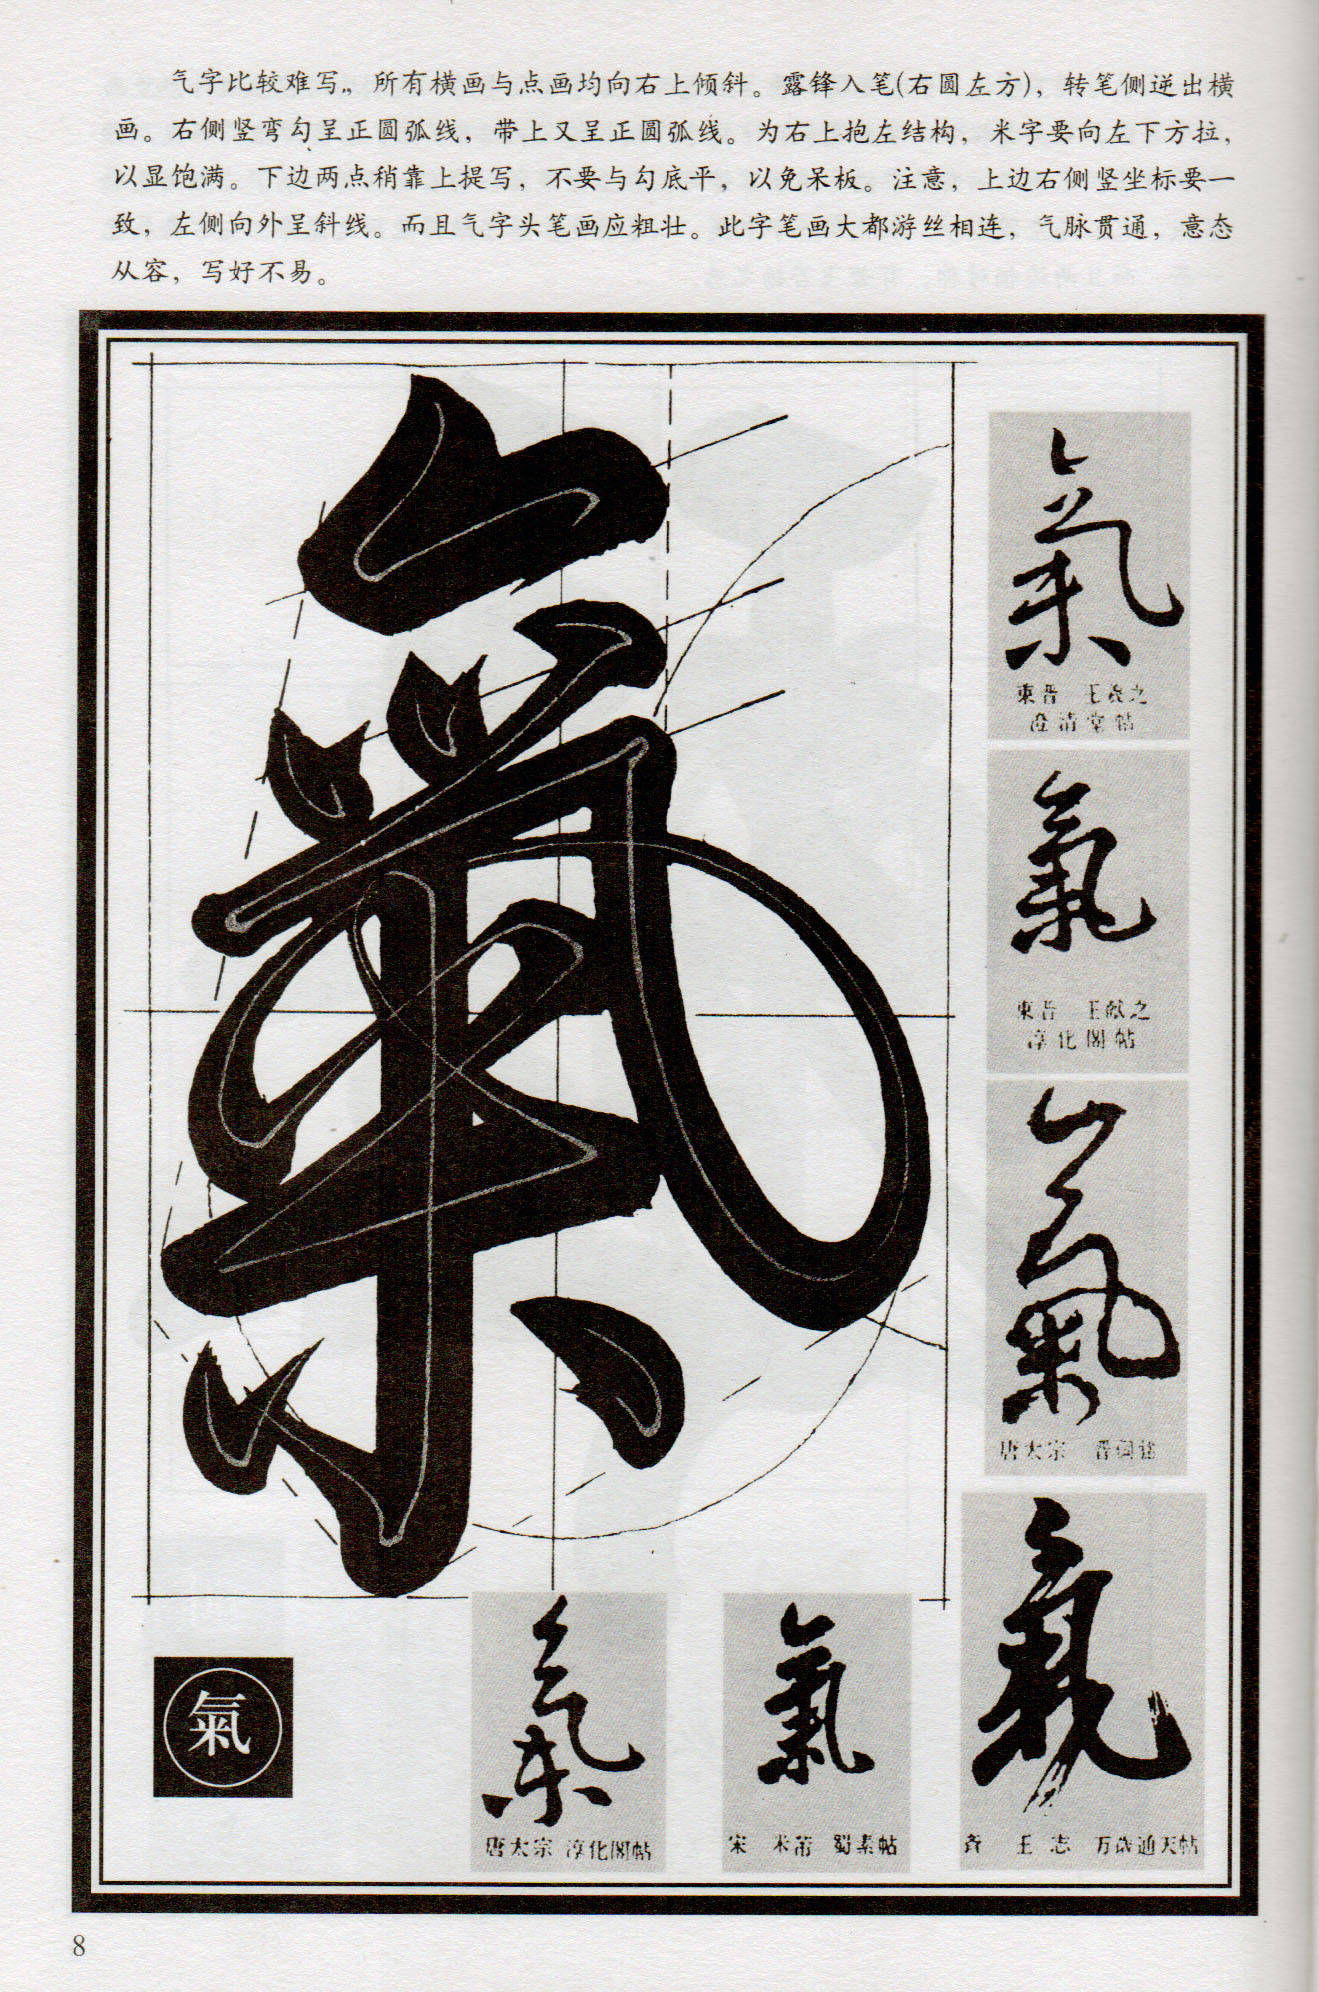 气字比较难写。，所有横画与点画均向右上倾斜。露锋入笔(右圆左方)，转笔侧逆出横
画。右侧竖弯勾呈正圆弧线，带上又呈正圆弧线。为右上抱左结构，米字要向左下方拉，
以显饱满。下边两点稍靠上提写，不要与勾底平，以免呆板。注意，上边右侧竖坐标要一
致，左侧向外呈斜线。而且气字头笔画应粗壮。此字笔画大都游丝相连，气脉贯通，意态
从容，写好不易。
氣
氣
東晋 王羲之
澄清堂帖
氣
東晋 王献之
淳化閣帖
氣
唐太宗 晋祠銘
氣
斉 王志 万歳通天帖
氣
唐太宗 淳化閣帖
氣
宋 米芾 蜀素帖
氣
8